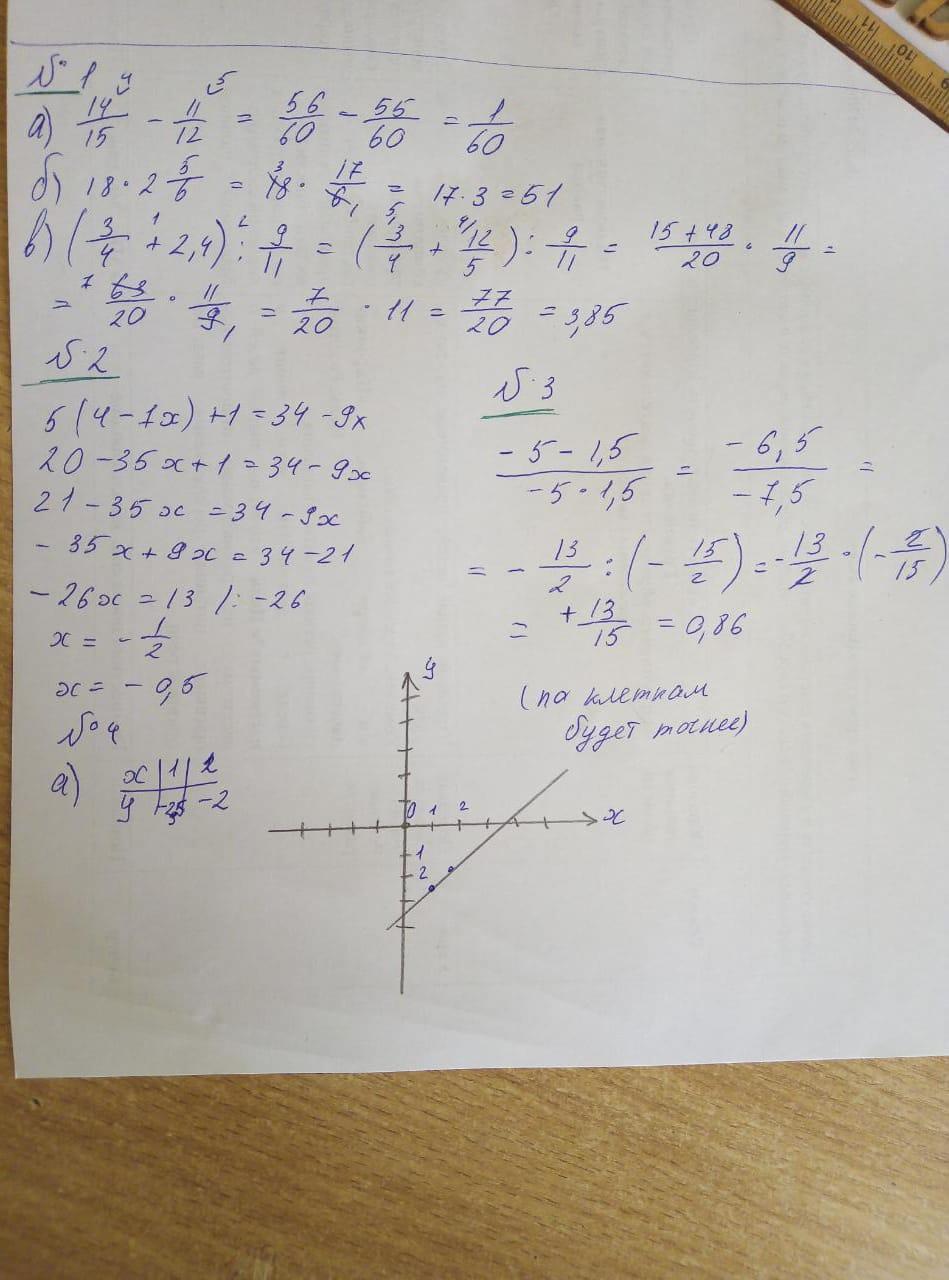 № 1
а) 14/15 - 11/12 = 56/60 - 55/60 = 1/60
4 5
б) 18 · 2 5/6 = 18 · 17/6 = 17 · 3 = 51
3 1
в) (3/4 + 2,4) : 9/11 = (3/4 + 12/5) : 9/11 = (15+48)/20 · 11/9 =
1 2 5 4
= 63/20 · 11/9 = 7/20 · 11 = 77/20 = 3,85
7 1
№ 2
5(4-7x)+1=34-9x
20-35x+1=34-9x
21-35x=34-9x
-35x+9x=34-21
-26x=13 /: -26
x = -1/2
x = -0,5
№ 3
(-5-1,5)/(-5·1,5) = (-6,5)/(-7,5) =
= -13/2 : (-15/2) = -13/2 · (-2/15)
= +13/15 = 0,86
(по клеткам
будет точнее)
№ 4
а) x | 1 | 2
y | | -2
y
0 1 2
x
1
2
11 10